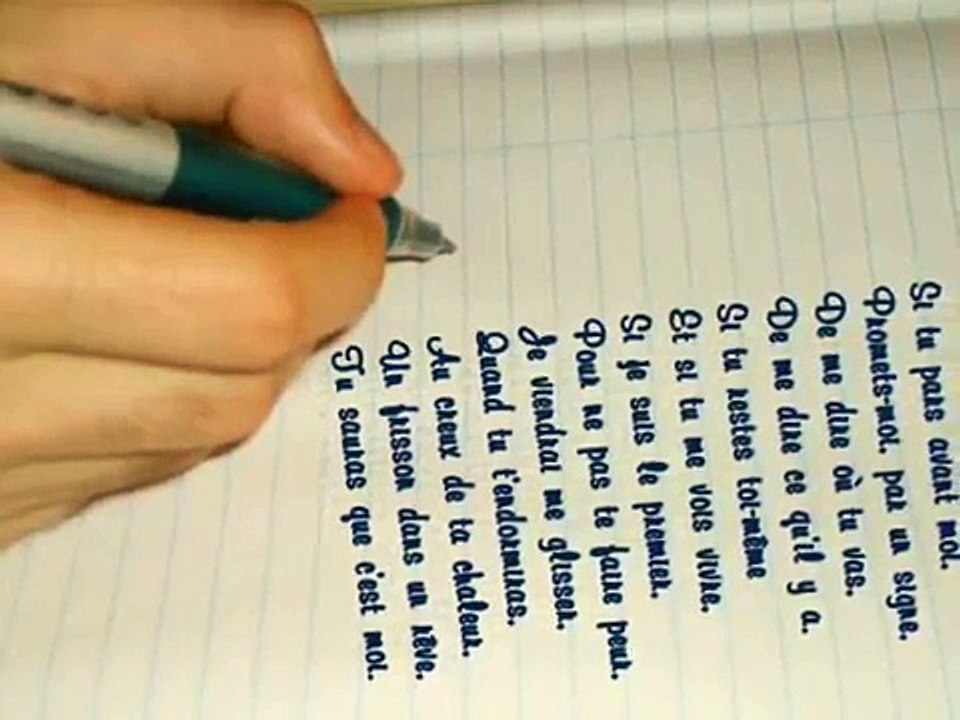 Si tu pars avant moi.
Promets-moi. par un signe.
De me dire où tu vas.
De me dire ce qu'il y a.
Si tu restes toi-même
Et si tu me vois vivre.
Si je suis le premier.
Pour ne pas te faire peur.
Je viendrai me glisser.
Quand tu t'endormiras.
Au creux de ta chaleur.
Un frisson dans un rêve.
Tu sauras que c'est moi.